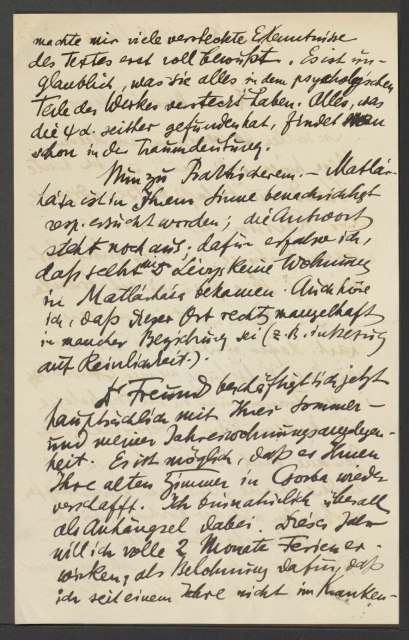 machte mir viele versteckte Erkenntnisse
des Textes erst voll bewußt. Es ist un-
glaublich, was Sie alles in dem psychologischen
Teile des Werkes versteckt haben. Alles, was
die ψα. seither gefunden hat, findet man
schon in der Traumdeutung.
Nun zu Praktischerem. – Matlár-
háza ist in Ihrem Sinne benachrichtigt
resp. ersucht worden; die Antwort
steht noch aus; dafür erfahre ich,
daß selbst Lévys keine Wohnung
in Matlárháza bekamen. Auch höre
ich, daß dieser Ort recht mangelhaft
in mancher Beziehung sei (z. B. in Bezug
auf Reinlichkeit.).
Dr Freund beschäftigt sich jetzt
hauptsächlich mit Ihrer Sommer-
und meiner Jahreswohnungsangelegen-
heit. Es ist möglich, daß er Ihnen
Ihre alten Zimmer in Csorba wieder
verschafft. Ich bin natürlich überall
als Anhängsel dabei. Dieses Jahr
will ich volle 2 Monate Ferien er-
wirken, als Belohnung dafür, daß
ich seit einem Jahre nicht im Kranken-